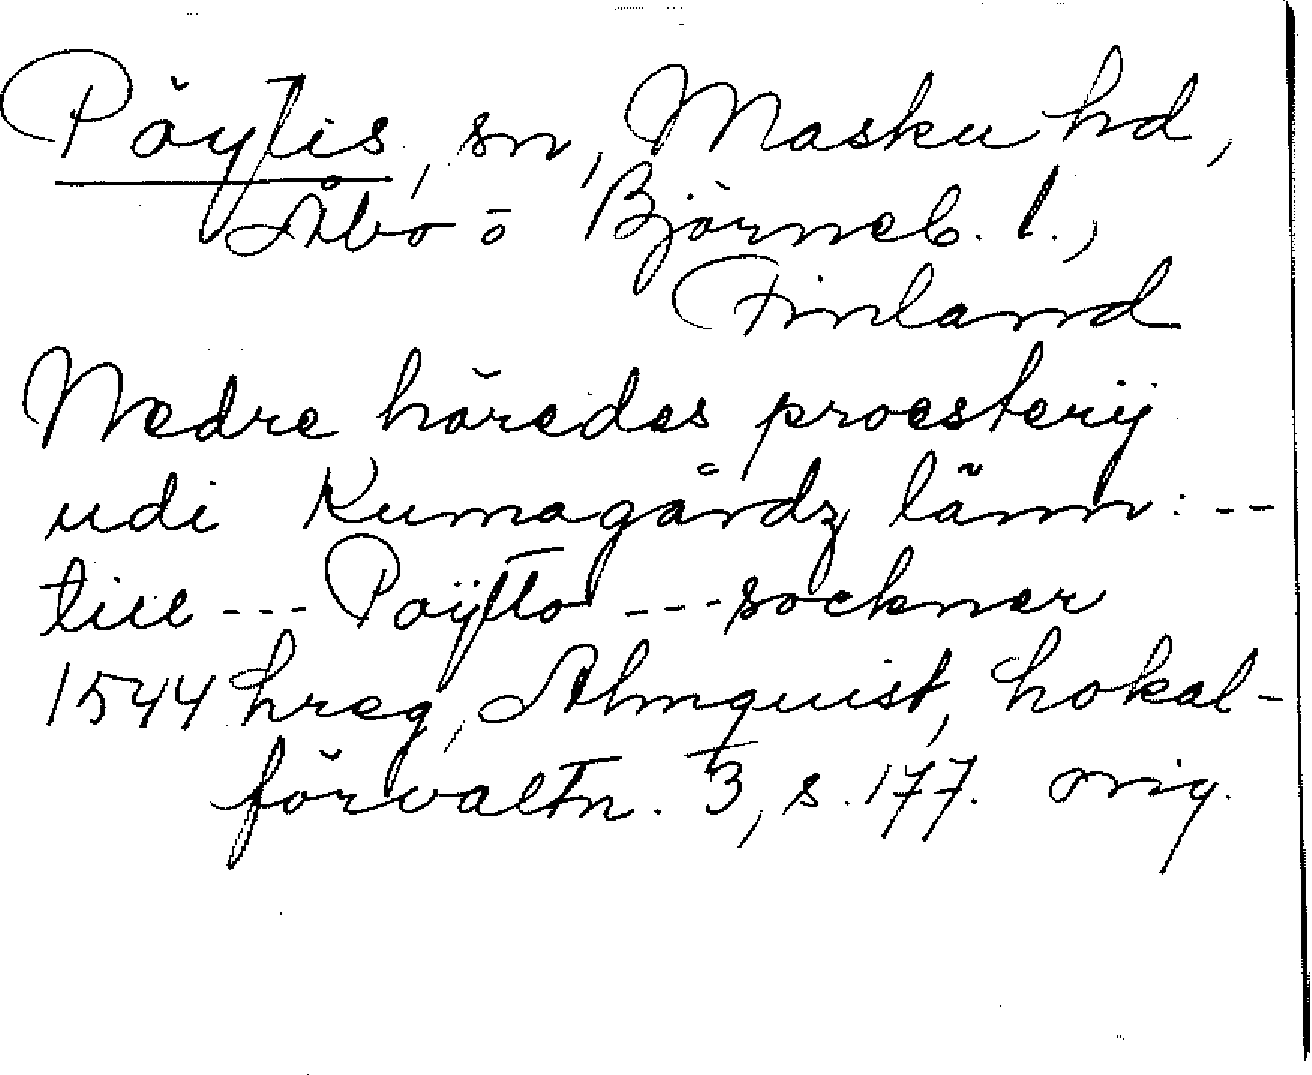 Pöytis, sn, Masku hd,
Åbo o Björneb. l.,
Finland
Nedre häredes proesterij
udi Kumagårdz länn: --
till --- Pöÿtto --- socknar
1544 hreg, Almquist, Lokal-
förvaltn. 3, s. 177. orig.